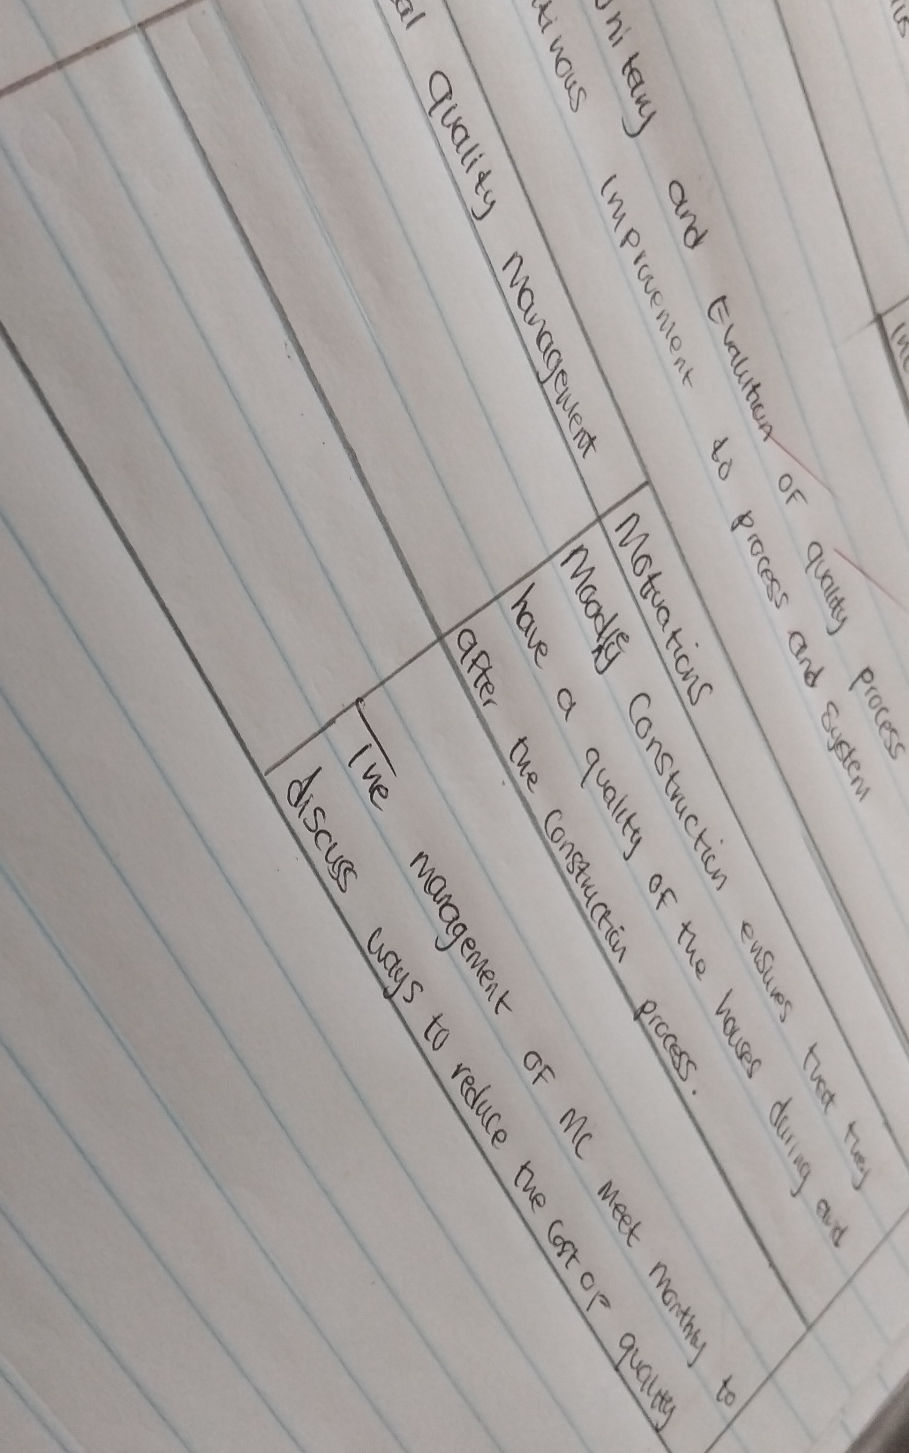 and Evalution of quality process
improvement to process and system
quality management
Motivations
Moodley Construction ensures that they
have a quality of the houses during and
after the construction process.
The management of MC meet monthly to
discuss ways to reduce the cost of quality